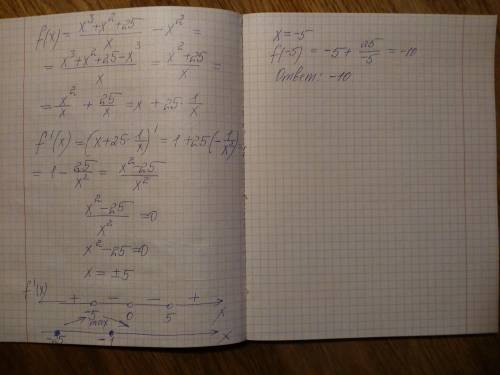 f(x) = (x³+x²+25)/x − x² =
= (x³+x²+25−x³)/x = (x²+25)/x =
= x²/x + 25/x = x + 25·1/x
f'(x) = (x+25·1/x)' = 1+25(−1/x²) =
= 1 − 25/x² = (x²−25)/x²
(x²−25)/x² = 0
x²−25=0
x = ±5
f'(x) + − − +
-5 0 5 x
max
-25 -1 x
x = -5
f(-5) = -5 + 25/-5 = -10
Ответ: -10